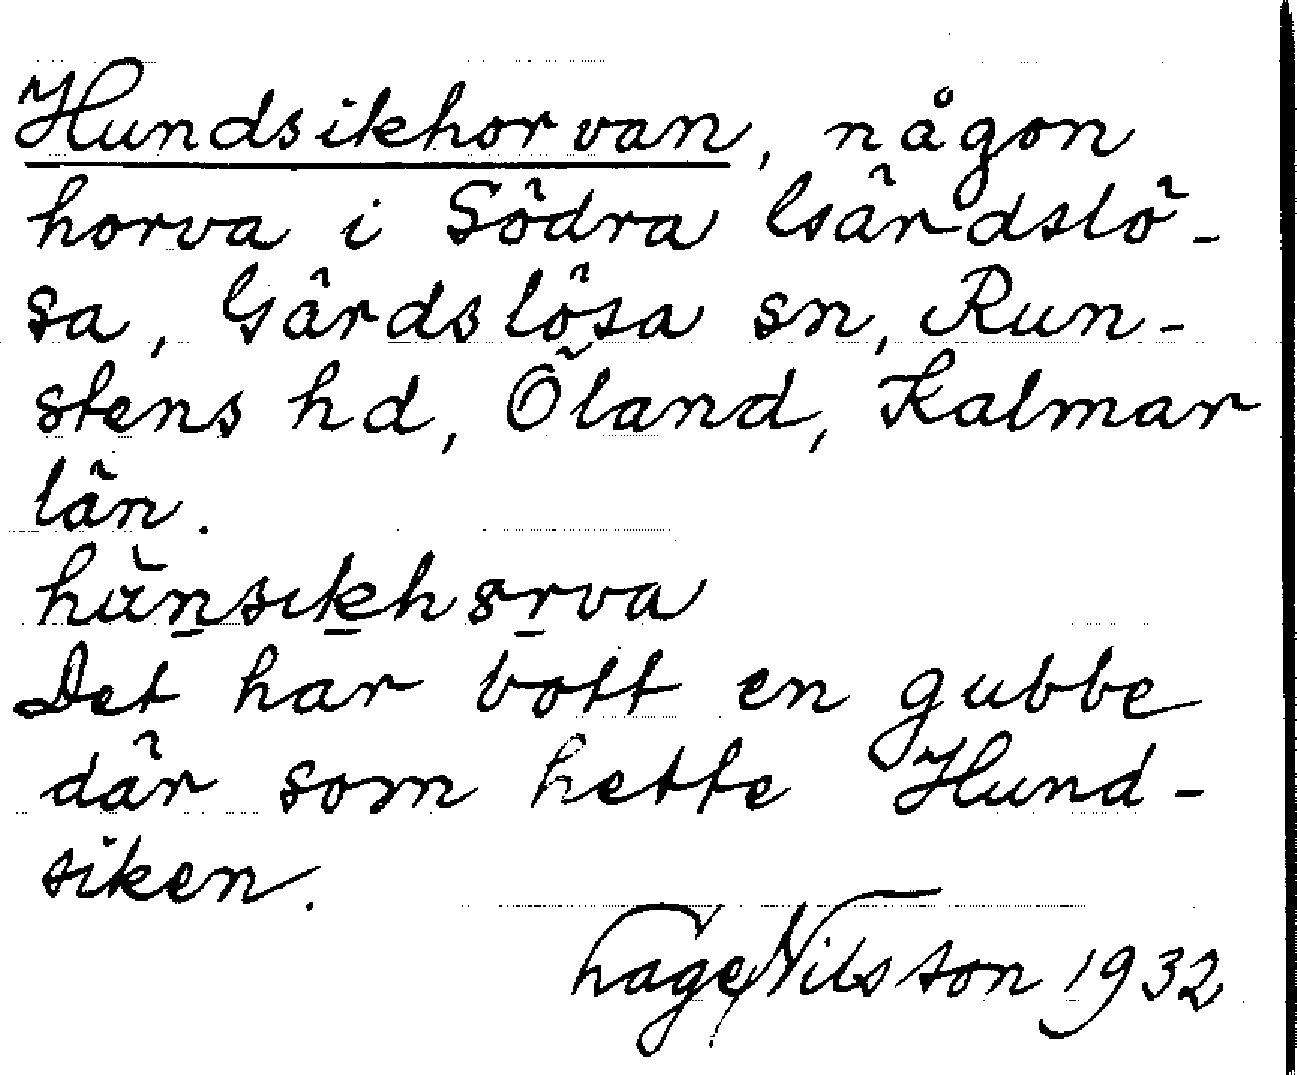 Hundsikhorvan, någon
horva i Södra Gärdslö-
sa, Gärdslösa sn, Run-
stens hd, Öland, Kalmar
län.
hùn̠sik̠hsr̠va
Det har bott en gubbe
där som hette Hund-
siken.
Hage Nilsson 1932